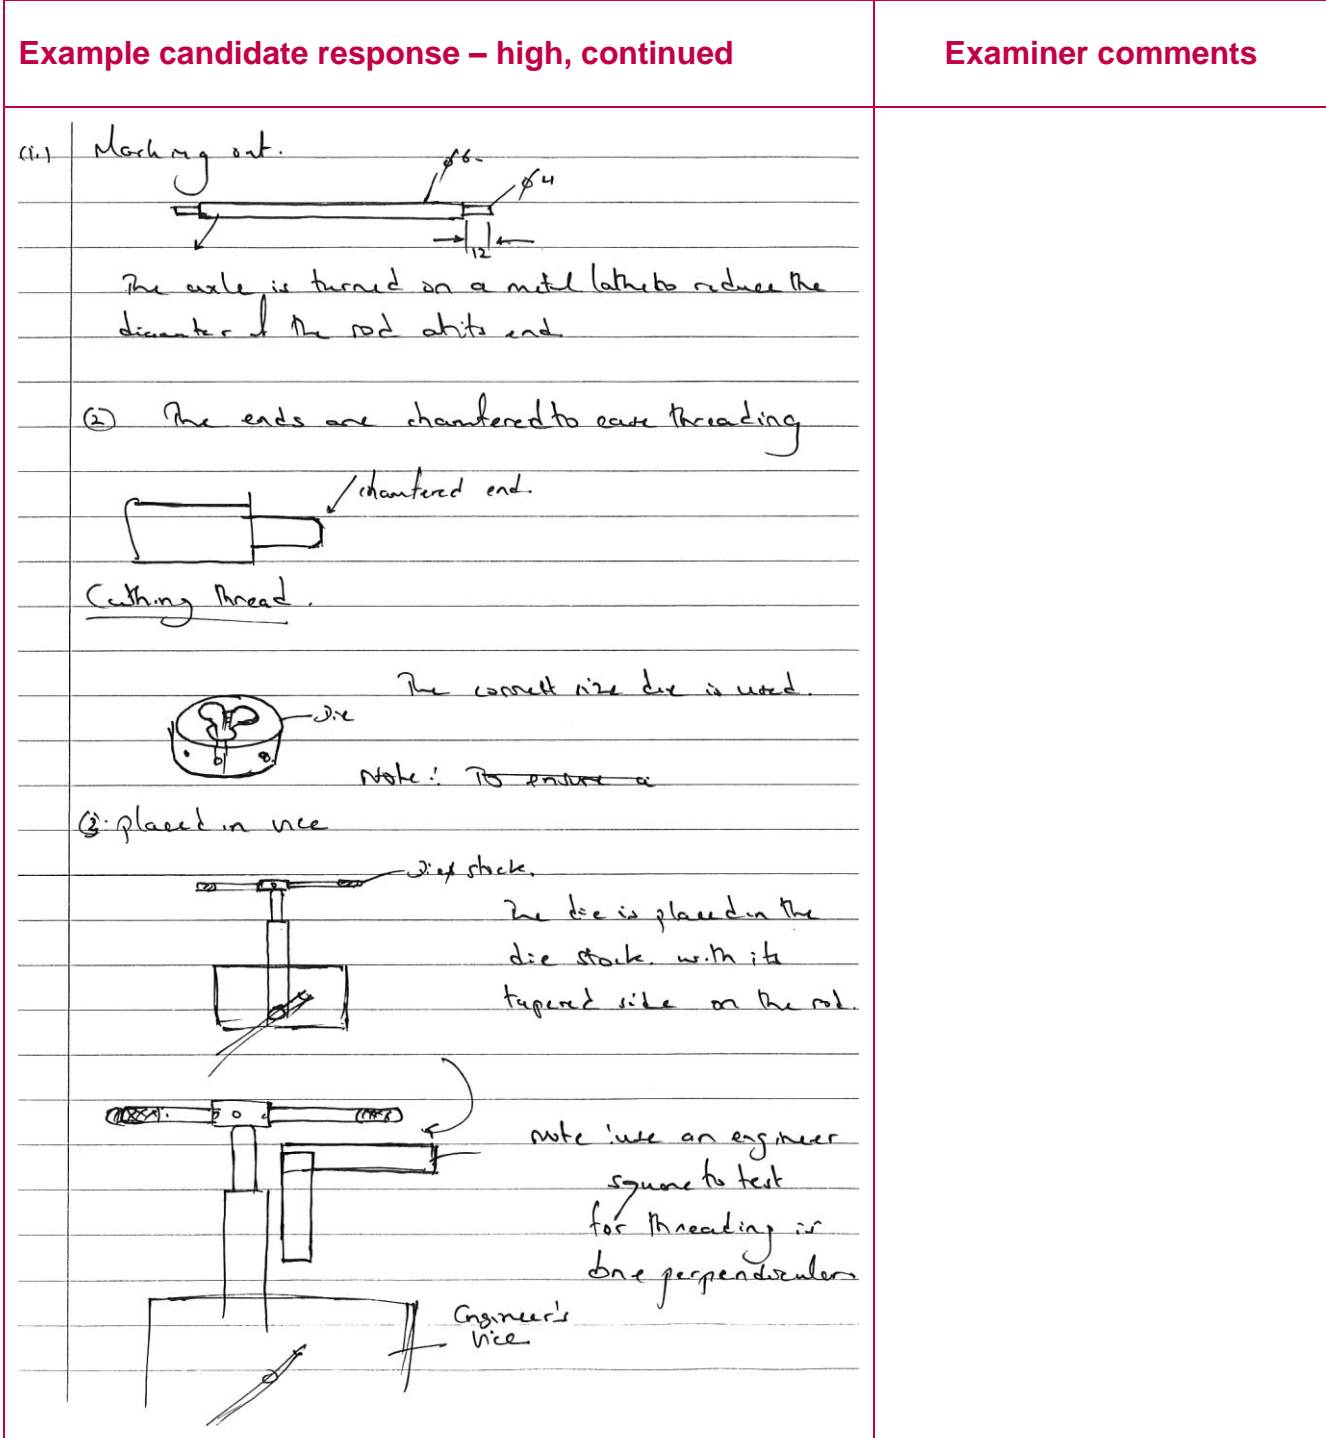 Example candidate response – high, continued
Examiner comments
(i.) Marking out.
ø6
ø4
12
The axle is turned on a metal lathe to reduce the
diameter of the rod at its end
② The ends are chamfered to ease threading
chamfered end.
Cutting Thread.
The correct size die is used.
Die
Note: To ensure a
③ placed in vice
Die stock.
The die is placed in the
die stock. with its
tapered side on the rod.
note : use an engineer
square to test
for threading is
done perpendicular
Engineer's
Vice